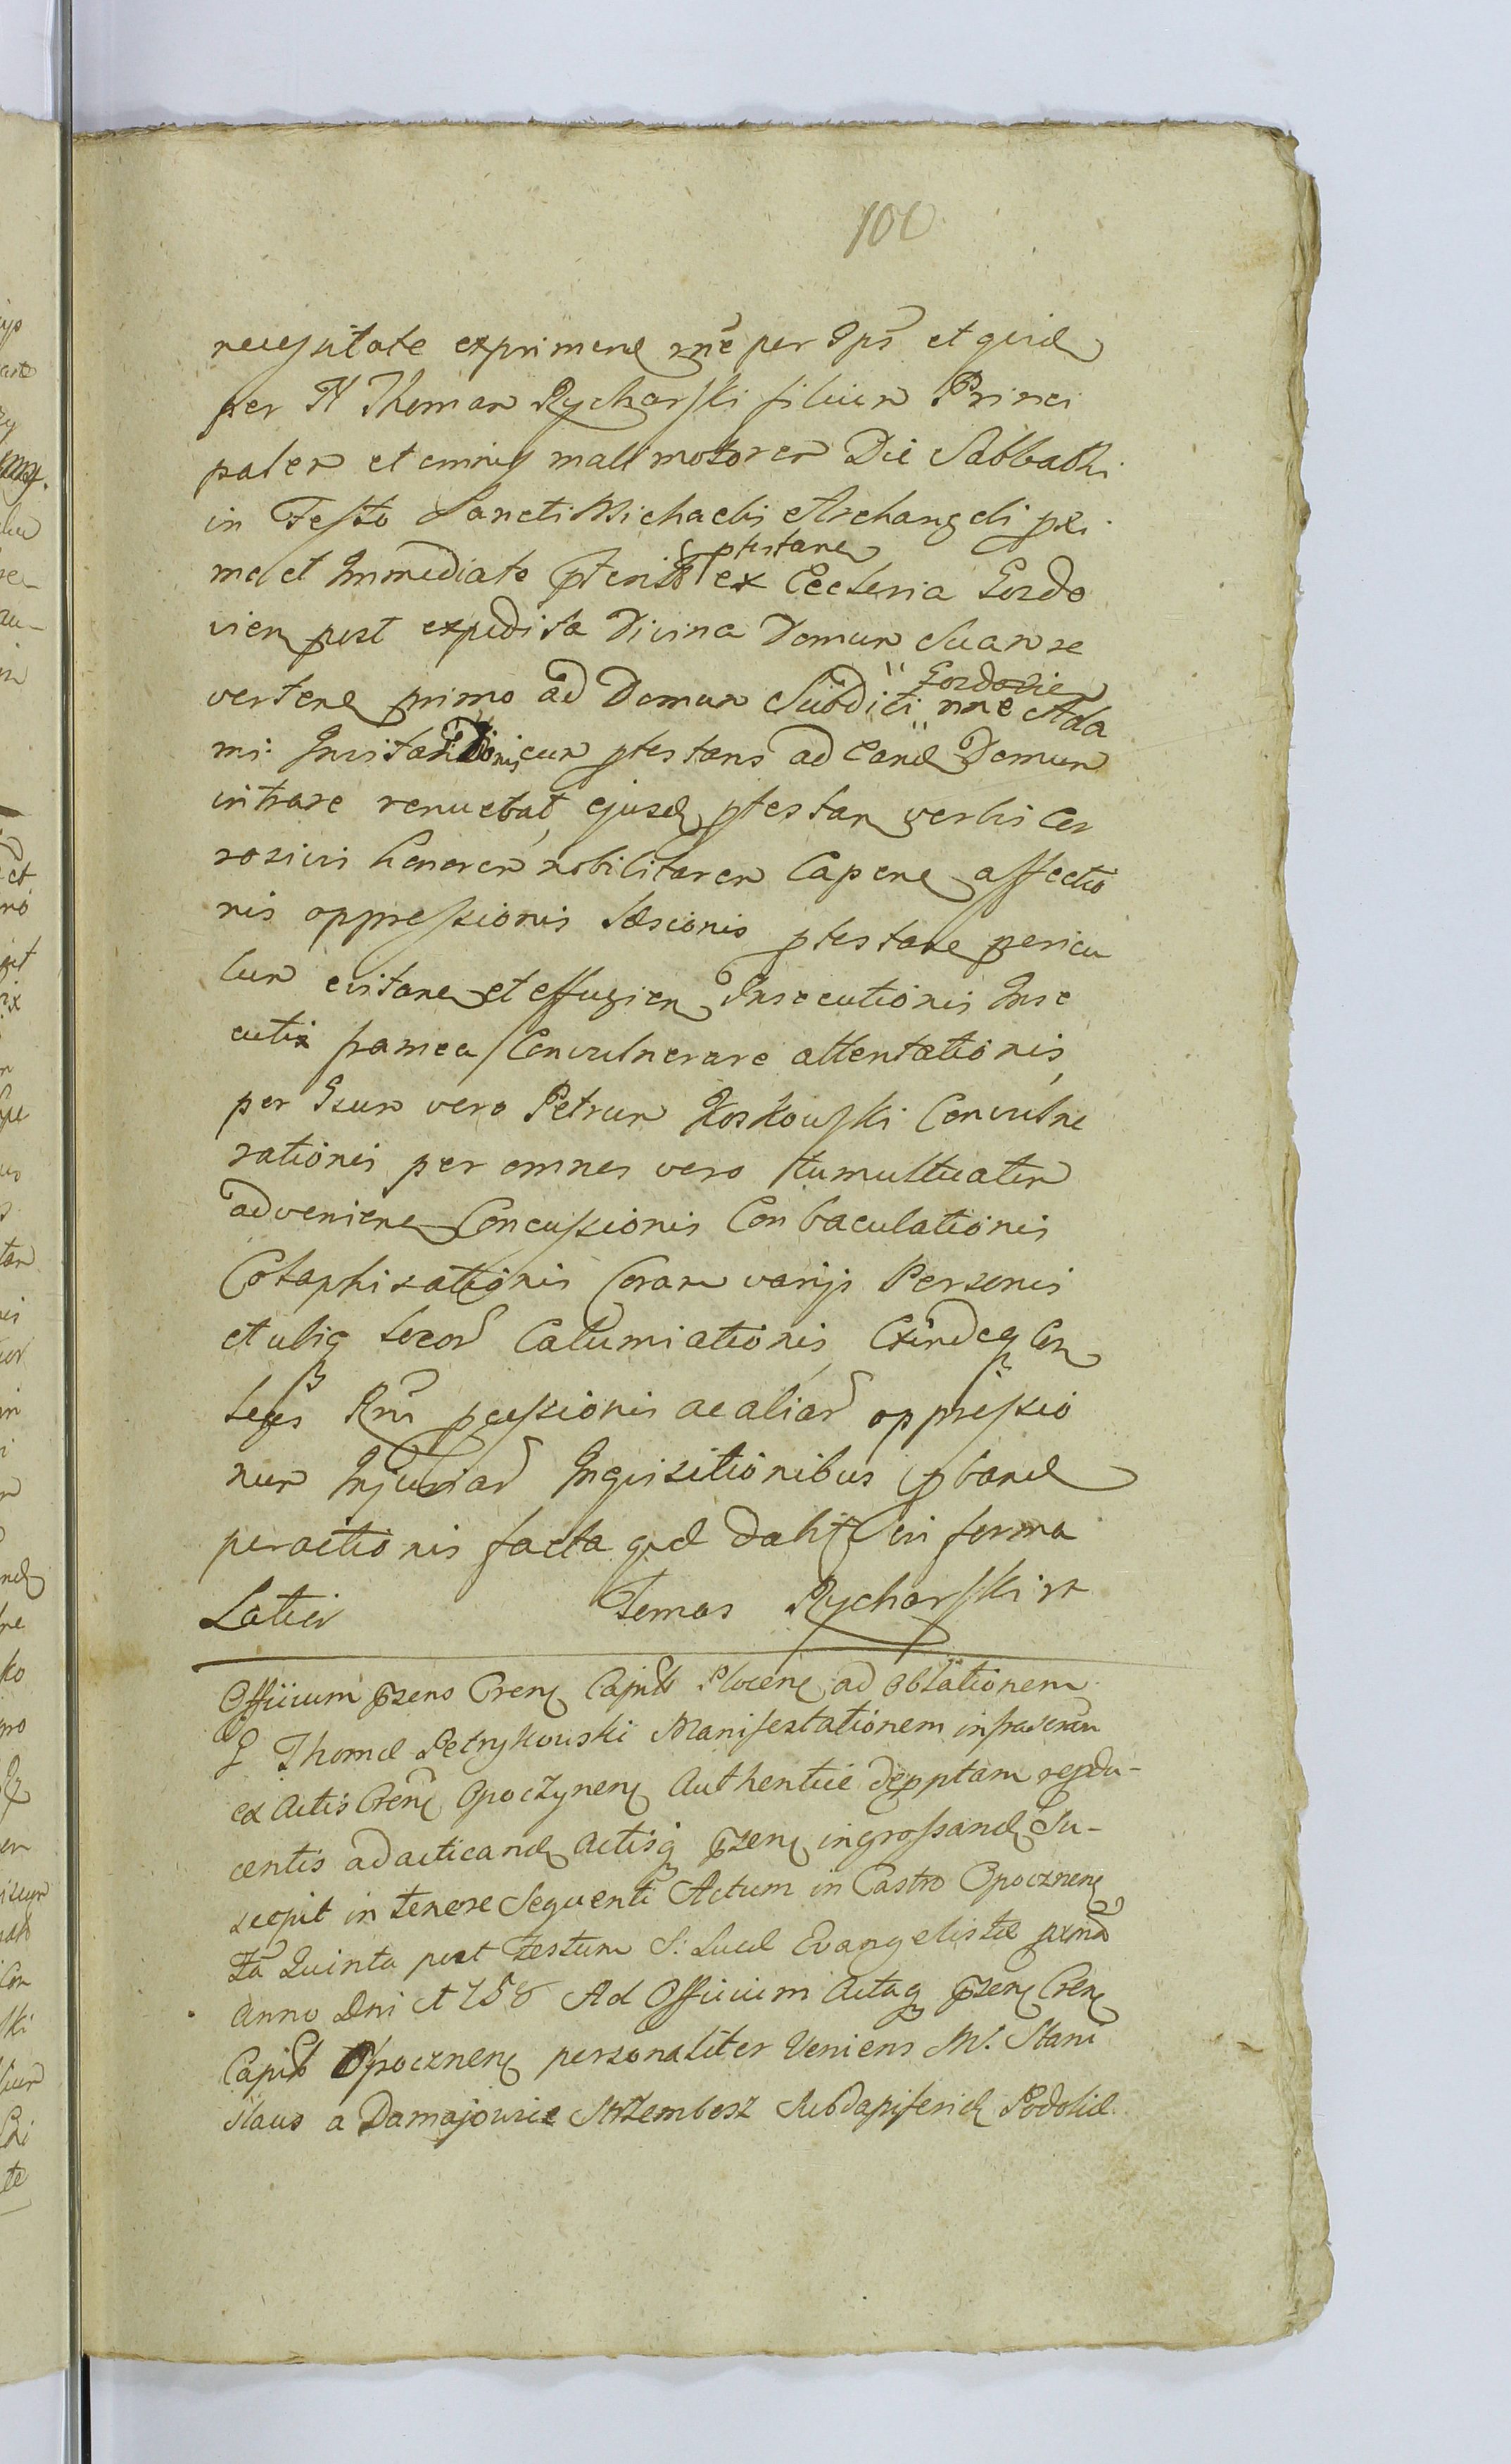 100
necessitate exprimend nne per Ips et quid
per N Thoman Rycharski filium Princi
palem et omnis mali motorem Die Sabbathi
in Festo Sancti Michaelis Archangeli pxi
me et Immediate pterito ex Ecclesia Gozdo
ptestane
vien post expedita Divina Domum Suam re
verten primo ad Domum Subditi nne Ada
Gozdovien
mi cum ptestans ad eand Domum
intrare renuebat, ejusd ptestan verbis Cor
rosivis honorem nobilitarem Capene affectio
nis oppressionis Læsionis ptestane pericu
lum evitane et effugien Insecutionis Inse
cutis framea Convulnerare attentationis,
per Gsum vero Petrum Koskowski Convulne
rationis per omnes vero tumultuatim
adveniene Concussionis Conbaculationis
Colaphisationis Coram varijs Personis
et ubiq locor Calumiationis, Exindeq Con
leges Rni pcussionis ac aliar oppressio
num Injuriar Inquisitionibus pband
peractionis facta qd Dabit in forma
Latiei Tomas Rycharski m
Officium pzens Crens Capitle Plocens ad oblationem
G Thomæ Petrykowski Manifestationem infrascrän
ex Actis Crens Opoczynens Authentice depptam repdu-
centis ad acticand Actisq pzens ingrossand Su-
scepit in tenore Sequenti Actum in Castro Opocznens
Fa Quinta post Festum S: Lucæ Evangelistæ pxma
Anno Dni 1758 Ad Officium Actaq pzens Crens
Capitle Opocznens personaliter Veniens M. Stani
slaus a Damajowie Strzembosz Subdapiferid Podoliæ